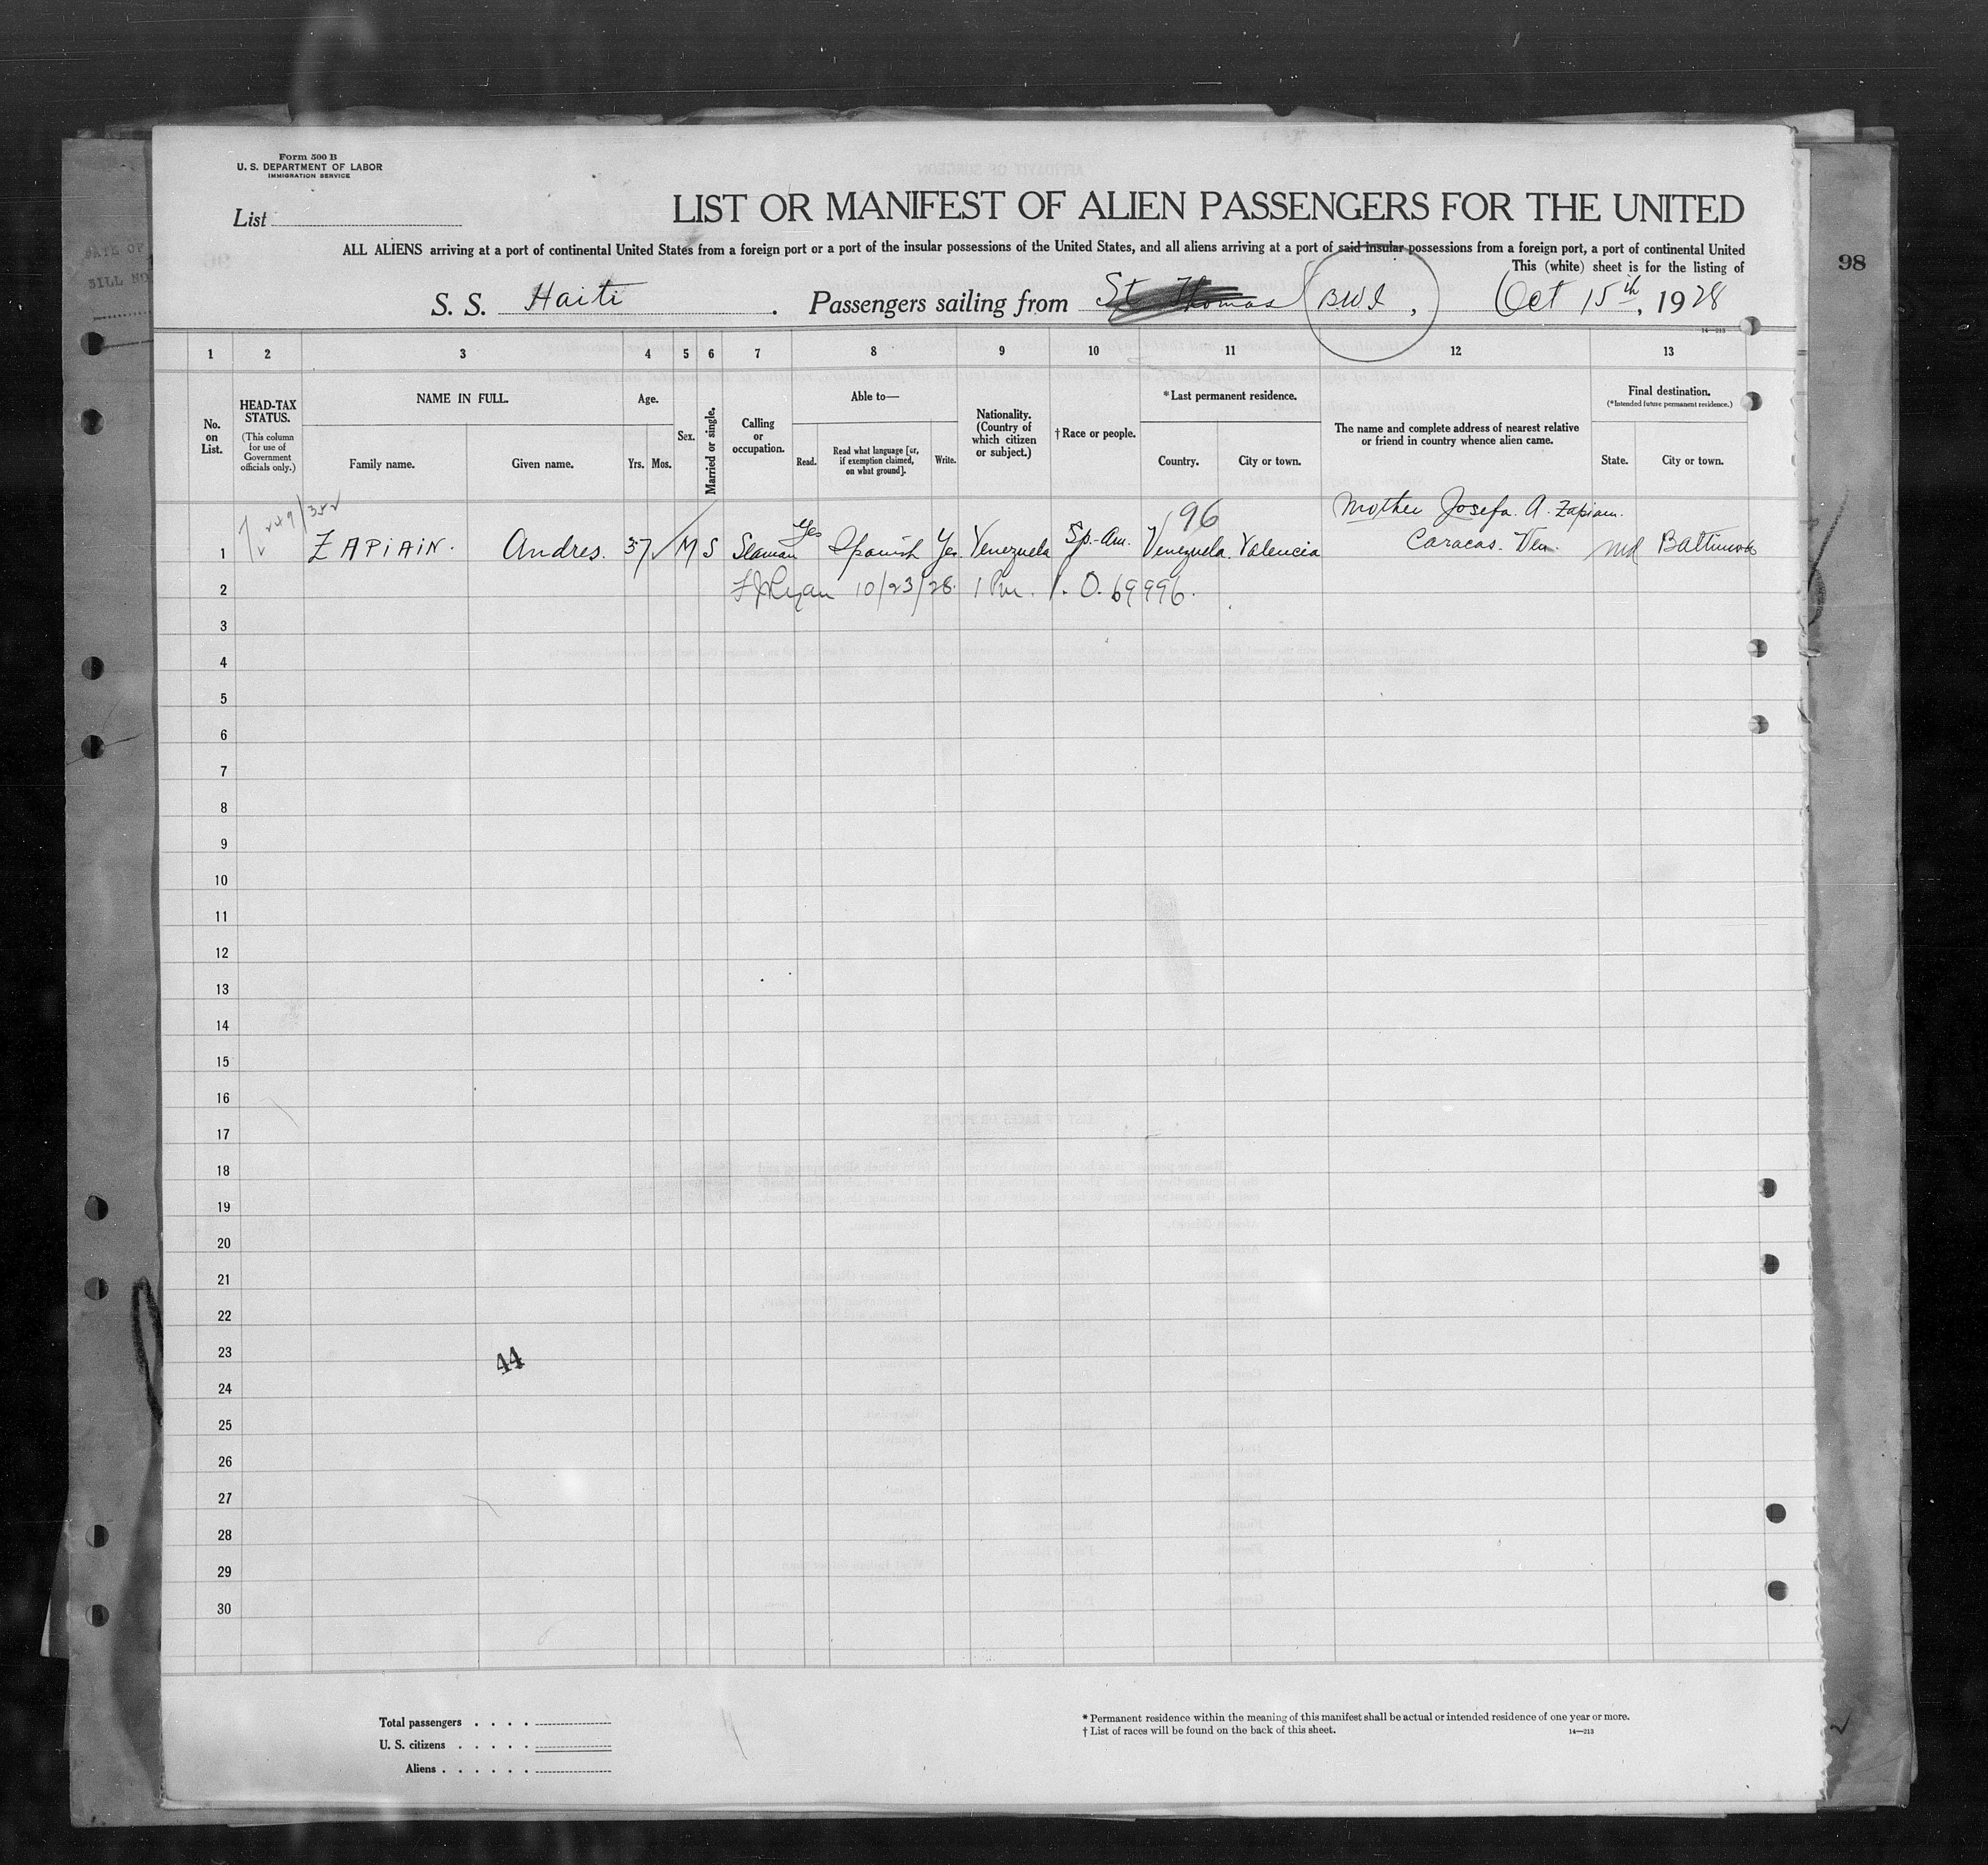 Form 500 B
U. S. DEPARTMENT OF LABOR
IMMIGRATION SERVICE
List
LIST OR MANIFEST OF ALIEN PASSENGERS FOR THE UNITED
ALL ALIENS arriving at a port of continental United States from a foreign port or a port of the insular possessions of the United States, and all aliens arriving at a port of said insular possessions from a foreign port, a port of continental United
This (white) sheet is for the listing of
98
S. S. Haiti . Passengers sailing from St Thomas BWI , Oct 15th, 1928
14—213
1 2 3 4 5 6 7 8 9 10 11 12 13
No. on List.
HEAD-TAX STATUS.
(This column for use of Government officials only.)
NAME IN FULL.
Family name.
Given name.
Age.
Yrs. Mos.
Sex.
Married or single.
Calling or occupation.
Able to—
Read.
Read what language [or, if exemption claimed, on what ground].
Write.
Nationality. (Country of which citizen or subject.)
†Race or people.
*Last permanent residence.
Country.
City or town.
The name and complete address of nearest relative or friend in country whence alien came.
Final destination.
(*Intended future permanent residence.)
State.
City or town.
96
Mother Josefa. A. Zapiain.
1 ZAPIAIN. Andres. 37 M S Seaman Yes Spanish Yes Venezuela Sp.-Am. Venezuela. Valencia Caracas. Ven. Md Baltimore
2 FJRyan 10/23/28. 1. O. 69996.
3
4
5
6
7
8
9
10
11
12
13
14
15
16
17
18
19
20
21
22
23
44
24
25
26
27
28
29
30
Total passengers . . . .
U. S. citizens . . . . .
Aliens . . . . . .
* Permanent residence within the meaning of this manifest shall be actual or intended residence of one year or more.
† List of races will be found on the back of this sheet.
14—213